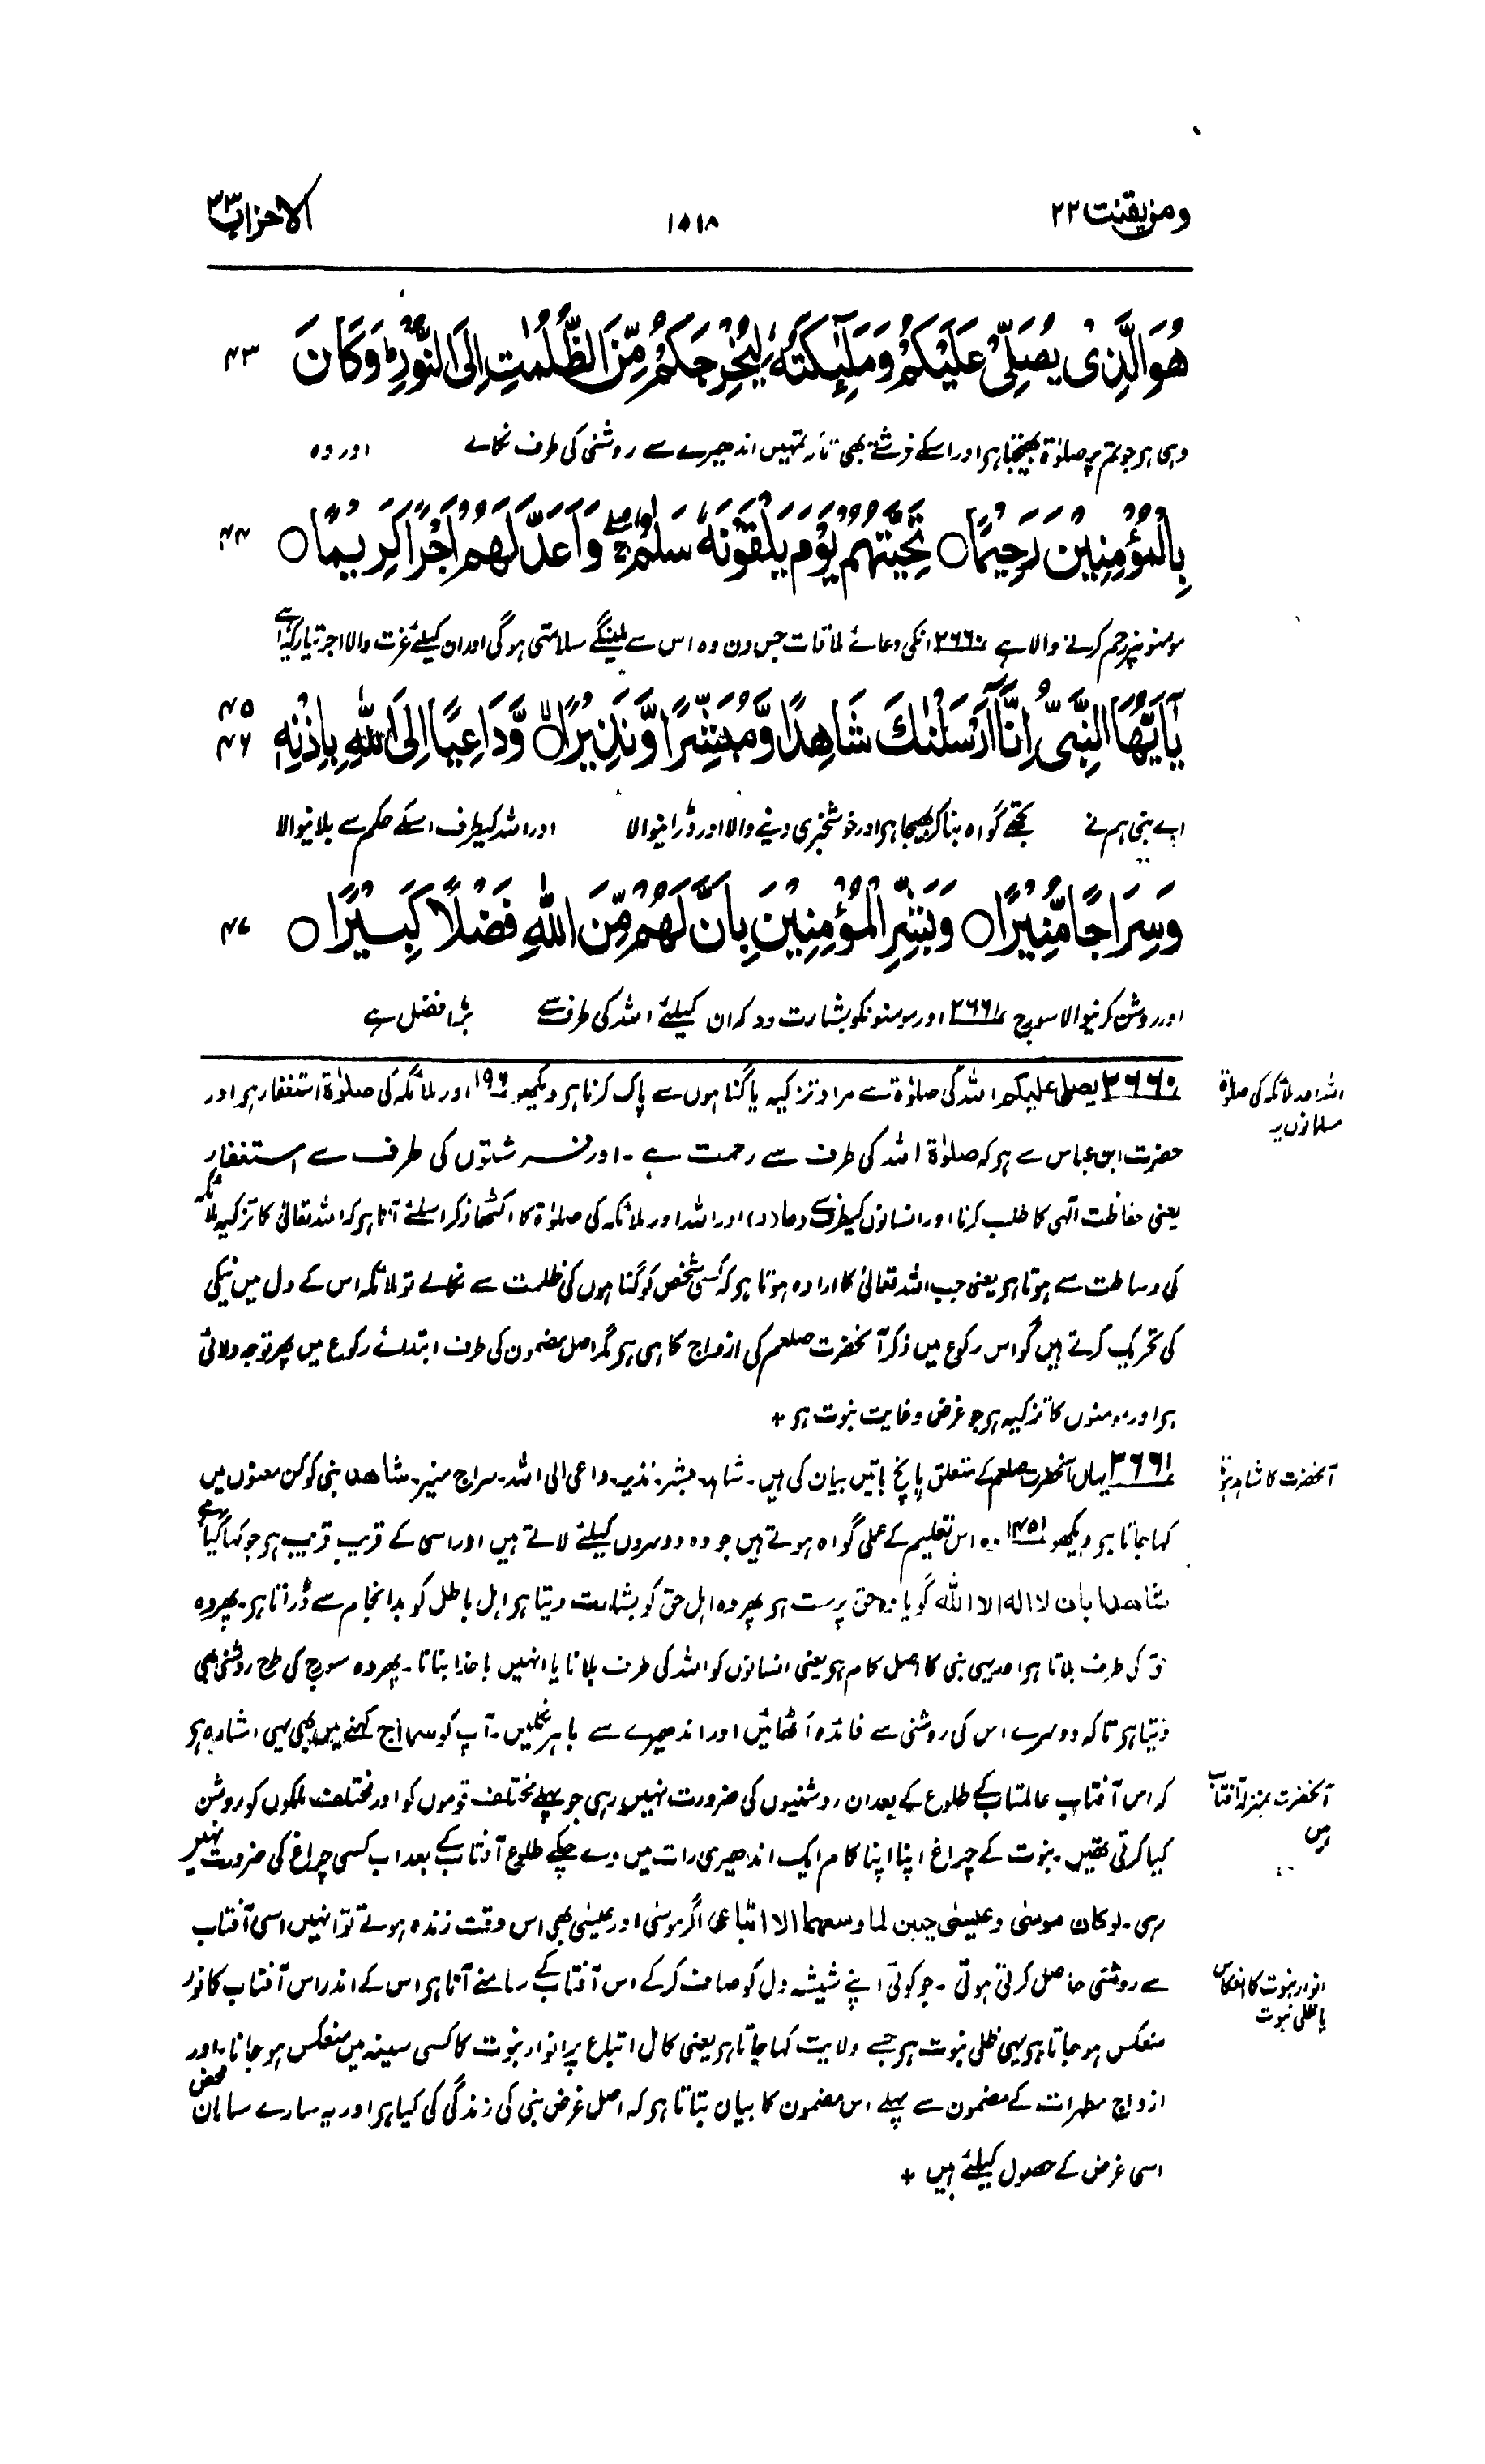 ومن يقنت ٢٢
١٥١٨
الاحزاب ٣٣
هُوَ الَّذِىْ يُصَلِّىْ عَلَيْكُمْ وَمَلٰٓئِكَتُهٗ لِيُخْرِجَكُمْ مِّنَ الظُّلُمٰتِ اِلَى النُّوْرِ ؕ وَكَانَ
۴۳
وہی ہر جو تم پر صلوٰۃ بھیجتا ہر اور اسکے فرشتے بھی تا کہ تمہیں اندھیرے سے روشنی کی طرف نکالے اور وہ
بِالْمُؤْمِنِيْنَ رَحِيْمًا ○ تَحِيَّتُهُمْ يَوْمَ يَلْقَوْنَهٗ سَلٰمٌ ۖۚ وَاَعَدَّ لَهُمْ اَجْرًا كَرِيْمًا ○
۴۴
مومنو نپر رحم کرنے والا ہے ۲۶۶۰ انکی دعائے ملاقات جس دن وہ اس سے ملینگے سلامتی ہوگی اور ان کیلئے عزت والا اجر تیار کیا ہے
يٰۤاَيُّهَا النَّبِىُّ اِنَّاۤ اَرْسَلْنٰكَ شَاهِدًا وَّمُبَشِّرًا وَّنَذِيْرًا ۙ وَّدَاعِيًا اِلَى اللّٰهِ بِاِذْنِهٖ
۴۵
۴۶
اے نبی ہم نے تجھے گواہ بنا کر بھیجا ہر اور خوشخبری دینے والا اور ڈرانیوالا اور اللہ کیطرف اسکے حکم سے بلانیوالا
وَسِرَاجًا مُّنِيْرًا ○ وَبَشِّرِ الْمُؤْمِنِيْنَ بِاَنَّ لَهُمْ مِّنَ اللّٰهِ فَضْلًا كَبِيْرًا ○
۴۷
اور روشن کرنیوالا سورج ۲۶۶۱ اور مومنونکو بشارت دو کہ ان کیلئے اللہ کی طرف سے بڑا فضل ہے
۲۶۶۰ یصلی علیکم اللہ کی صلوٰۃ سے مراد تزکیہ یا گناہوں سے پاک کرنا ہر دیکھو ۱۹۶ اور ملائکہ کی صلوٰۃ استغفار ہر اور
اللہ اور ملائکہ کی صلوٰۃ
مسلمانوں پر
حضرت ابن عباس سے ہر کہ صلوٰۃ اللہ کی طرف سے رحمت ہے ۔ اور فرشتوں کی طرف سے استغفار
یعنی حفاظت الٰہی کا طلب کرنا اور انسانوں کیطرف سے دعا (د) اور اللہ اور ملائکہ کی صلوٰۃ کا اکٹھا ذکر اسلئے آتا ہر کہ اللہ تعالیٰ کا تزکیہ ملائکہ
کی وساطت سے ہوتا ہر یعنی جب اللہ تعالیٰ کا ارادہ ہوتا ہر کہ کسی شخص کو گناہوں کی ظلمت سے نکالے تو ملائکہ اس کے دل میں نیکی
کی تحریک کرتے ہیں گو اس رکوع میں ذکر آنحضرت صلعم کی ازواج کا ہی ہر مگر اصل مضمون کی طرف ابتدائے رکوع میں پھر توجہ دلائی
ہر اور مومنوں کا تزکیہ ہر جو غرض و غایت نبوت ہر +
۲۶۶۱ یہاں آنحضرت صلعم کے متعلق پانچ باتیں بیان کی ہیں ۔ شاہد ۔ مبشر ۔ نذیر ۔ داعی الی اللہ ۔ سراج منیر ۔ شاھد نبی کو کن معنوں میں
آنحضرت کا شاہد ہونا
کہا جاتا ہر دیکھو ۱۴۵۱ وہ اس تعلیم کے عملی گواہ ہوتے ہیں جو وہ دوسروں کیلئے لاتے ہیں اور اسی کے قریب قریب ہر جو کہا گیا ہے
شاھدا بان لا الہ الا اللہ گویا وہ حق پرست ہر پھر وہ اہل حق کو بشارت دیتا ہر اہل باطل کو بد انجام سے ڈراتا ہر ۔ پھر وہ
حق کی طرف بلاتا ہر اور یہی نبی کا اصل کام ہر یعنی انسانوں کو اللہ کی طرف بلانا یا انہیں باخدا بنانا ۔ پھر وہ سورج کی طرح روشنی بھی
دیتا ہر تاکہ دوسرے اس کی روشنی سے فائدہ اٹھائیں اور اندھیرے سے باہر نکلیں ۔ آپ کو سراج کہنے میں بھی یہی اشارہ ہر
کہ اس آفتاب عالمتاب کے طلوع کے بعد ان روشنیوں کی ضرورت نہیں رہی جو پہلے مختلف قوموں کو اور مختلف ملکوں کو روشن
آنحضرت بمنزلہ آفتاب
ہیں
کیا کرتی تھیں ۔ نبوت کے چراغ اپنا اپنا کام ایک اندھیری رات میں دے چکے طلوع آفتاب کے بعد اب کسی چراغ کی ضرورت نہیں
رہی ۔ لو کان موسیٰ و عیسیٰ حیین لما وسعہما الا اتباعی اگر موسیٰ اور عیسیٰ بھی اس وقت زندہ ہوتے تو انہیں اسی آفتاب
سے روشنی حاصل کرنی ہوتی ۔ جو کوئی اپنے شیشہ دل کو صاف کرکے اس آفتاب کے سامنے آتا ہر اس کے اندر اس آفتاب کا نور
انوار نبوت کا انعکاس
یا ظلی نبوت
منعکس ہو جاتا ہر یہی ظلی نبوت ہر جسے ولایت کہا جاتا ہر یعنی کامل اتباع پر انوار نبوت کا کسی سینہ میں منعکس ہو جانا ۔ اور
ازواج مطہرات کے مضمون سے پہلے اس مضمون کا بیان بتاتا ہر کہ اصل غرض نبی کی زندگی کی کیا ہر اور یہ سارے سامان محض
اسی غرض کے حصول کیلئے ہیں +